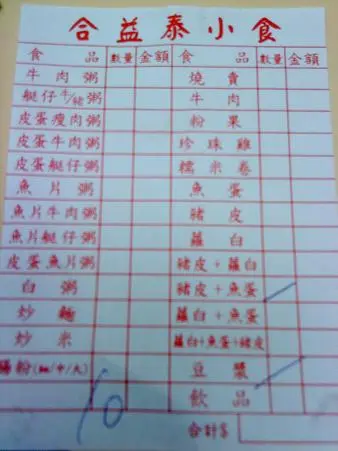 合益泰小食
食品 數量 金額 食品 數量 金額
牛肉粥 燒賣
艇仔牛/豬粥 牛肉
皮蛋瘦肉粥 粉果
皮蛋牛肉粥 珍珠雞
皮蛋艇仔粥 糯米卷
魚片粥 魚蛋
魚片牛肉粥 豬皮
魚片艇仔粥 蘿白
皮蛋魚片粥 豬皮+蘿白
白粥 豬皮+魚蛋
炒麵 蘿白+魚蛋
炒米 蘿白+魚蛋+豬皮
腸粉(細/中/大) 豆漿
10 飲品
合計$